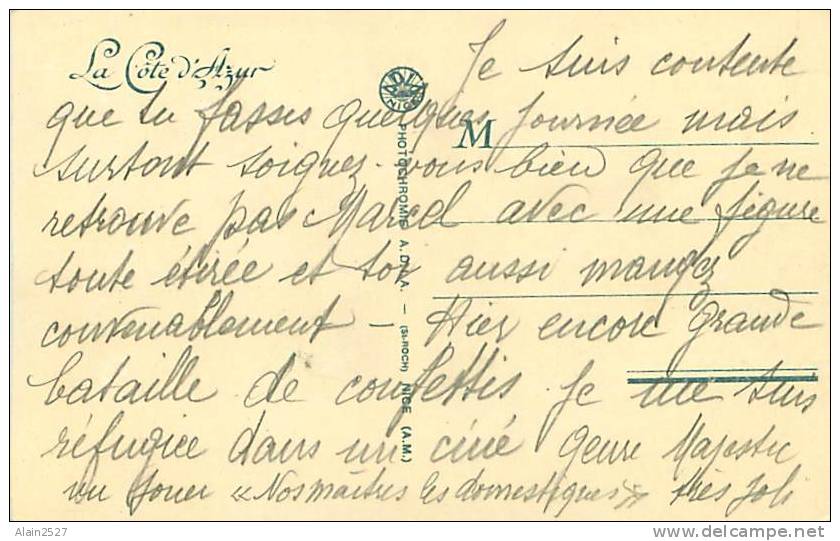 La Côte d'Azur
ADIA
NICE
PHOTOCHROMIE A. DIA. — (St-ROCH) NICE (A.M.)
M
Je suis contente
que tu fasses quelques journée mais
surtout soignez-vous bien que je ne
retrouve pas Marcel avec une figure
toute étirée et toi aussi mangez
convenablement — Hier encore grande
bataille de confettis. Je me suis
réfugiée dans un ciné genre Majestic
vu jouer « Nos maîtres les domestiques » très joli
Alain2527
www.delcampe.net